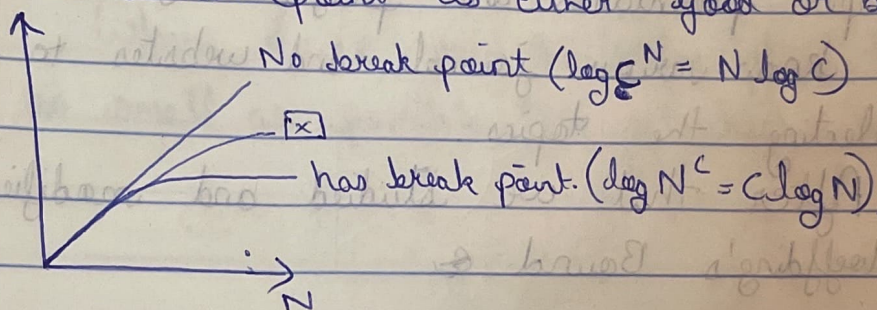 good or
No break point (log C^N = N log C)
[x]
has break point. (log N^c = C log N)
N